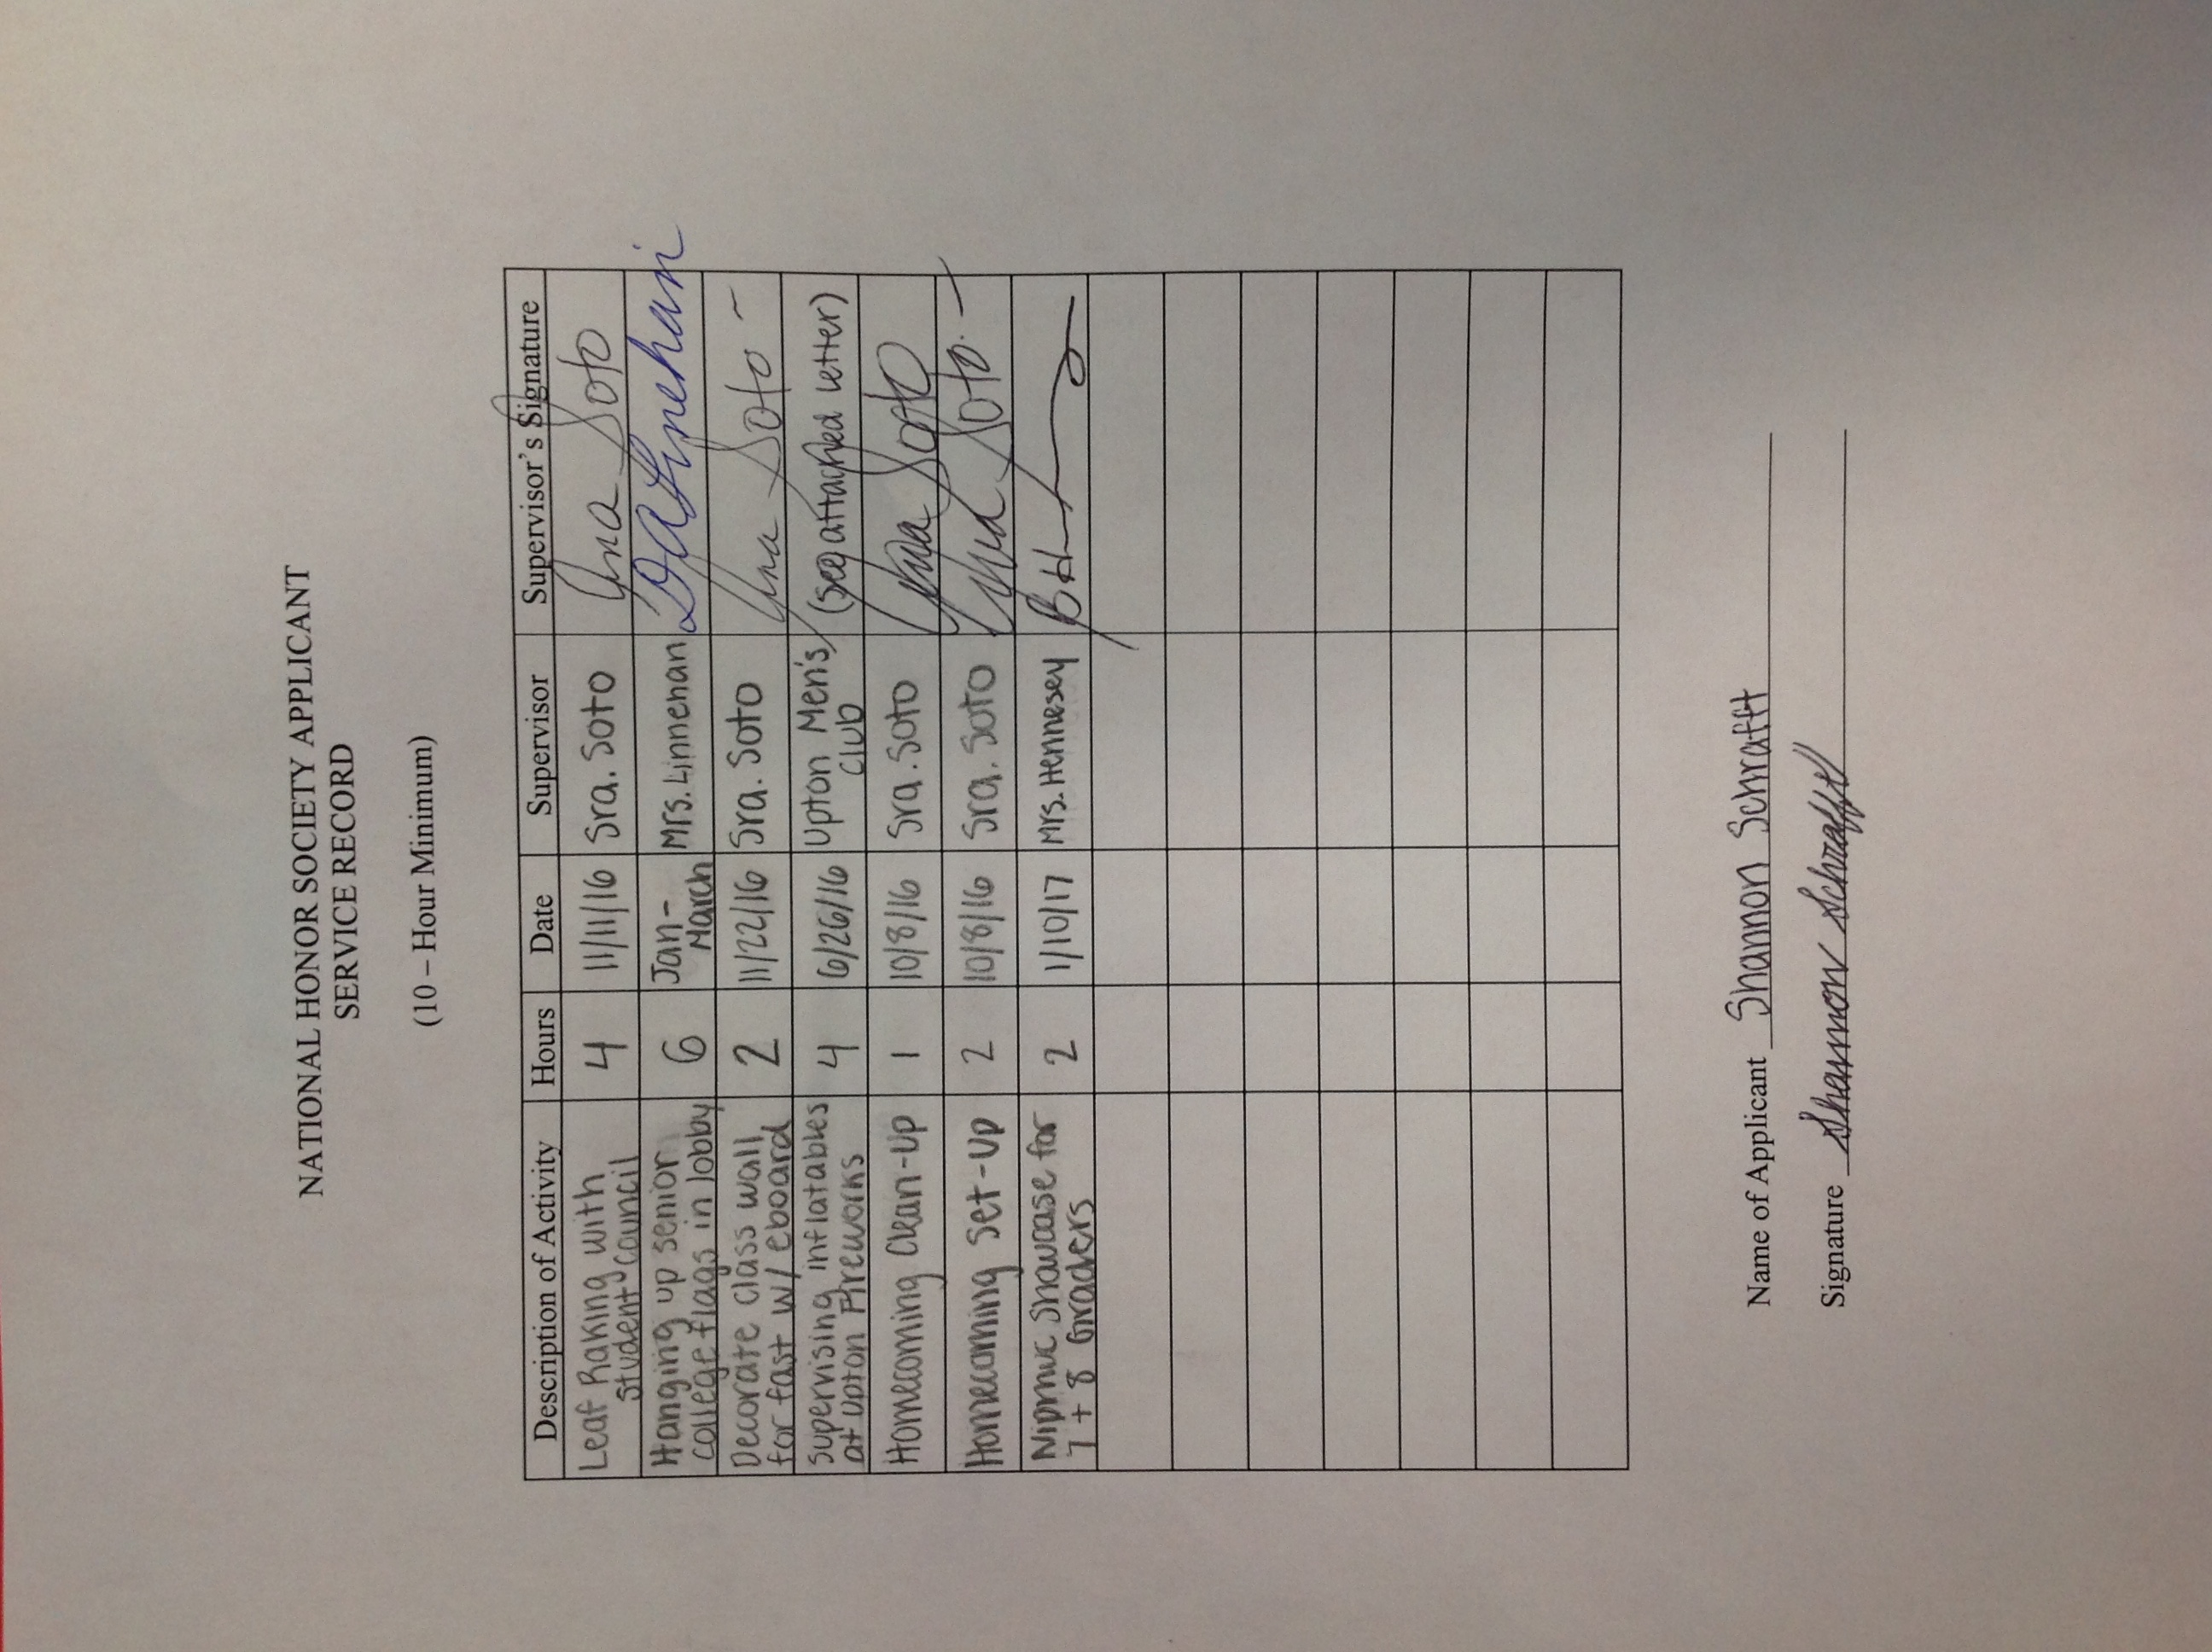 NATIONAL HONOR SOCIETY APPLICANT
SERVICE RECORD
(10 – Hour Minimum)
Description of Activity Hours Date Supervisor Supervisor's Signature
Leaf Raking with
student council 4 11/11/16 Sra. Soto Ana Soto
Hanging up senior
college flags in lobby 6 Jan-
March Mrs. Linnenan Linnehan
Decorate class wall
for fast w/ eboard 2 11/22/16 Sra. Soto Ana Soto
Supervising inflatables
at Upton Fireworks 4 6/26/16 Upton Men's
Club (see attached letter)
Homecoming Clean-Up 1 10/8/16 Sra. Soto Ana Soto
Homecoming Set-Up 2 10/8/16 Sra. Soto Ana Soto
Nipmuc Showcase for
7 + 8 Graders 2 1/10/17 Mrs. Hennesey
Name of Applicant Shannon Schrafft
Signature Shannon Schrafft